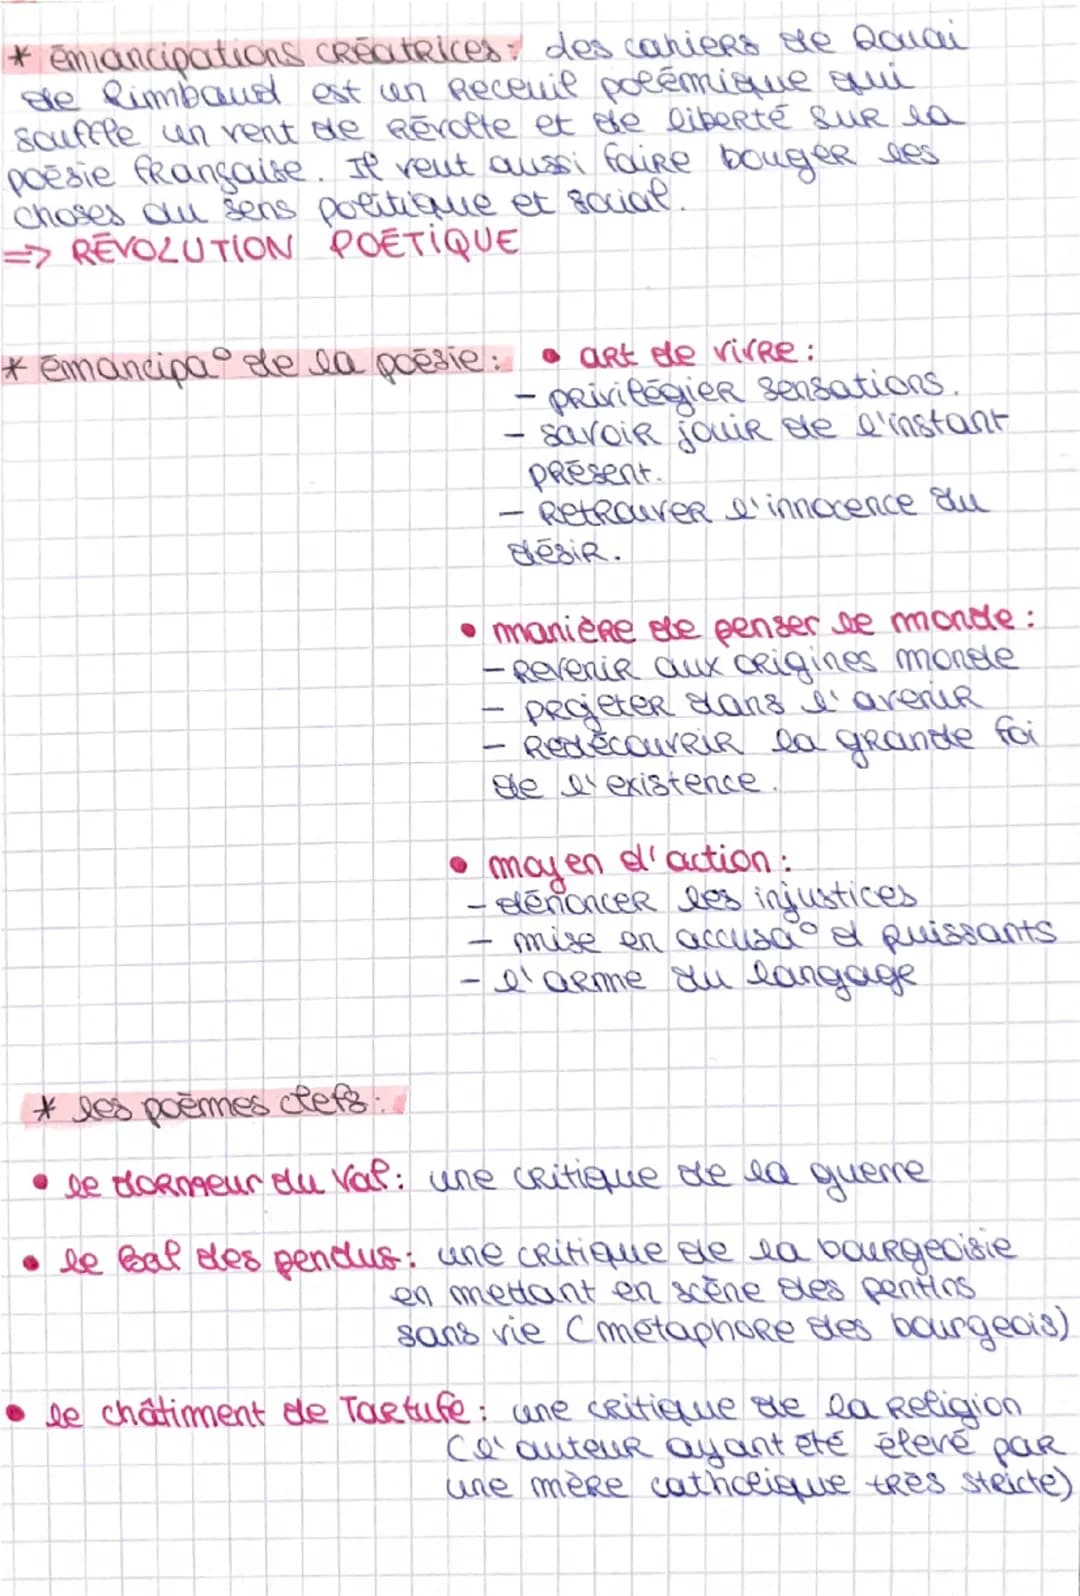 * émancipations créatrices : des cahiers de Douai
de Rimbaud est un receuil polémique qui
souffle un vent de révolte et de liberté sur la
poésie française. Il veut aussi faire bouger les
choses au sens politique et social.
=> RÉVOLUTION POÉTIQUE
* émancipa° de la poésie : • art de vivre :
- privilégier sensations.
- savoir jouir de l'instant
présent.
- Retrouver l'innocence du
désir.
• manière de penser le monde :
- Revenir aux origines monde
- projeter dans l'avenir
- Redécouvrir la grande foi
de l'existence.
• moyen d'action :
- dénoncer les injustices
- mise en accusa° d puissants
- l'arme du langage
* les poèmes clefs :
• le dormeur du Val : une critique de la guerre
• le Bal des pendus : une critique de la bourgeoisie
en mettant en scène des pentins
sans vie (métaphore des bourgeois)
• le châtiment de Tartufe : une critique de la religion
(l'auteur ayant été élevé par
une mère catholique très stricte)